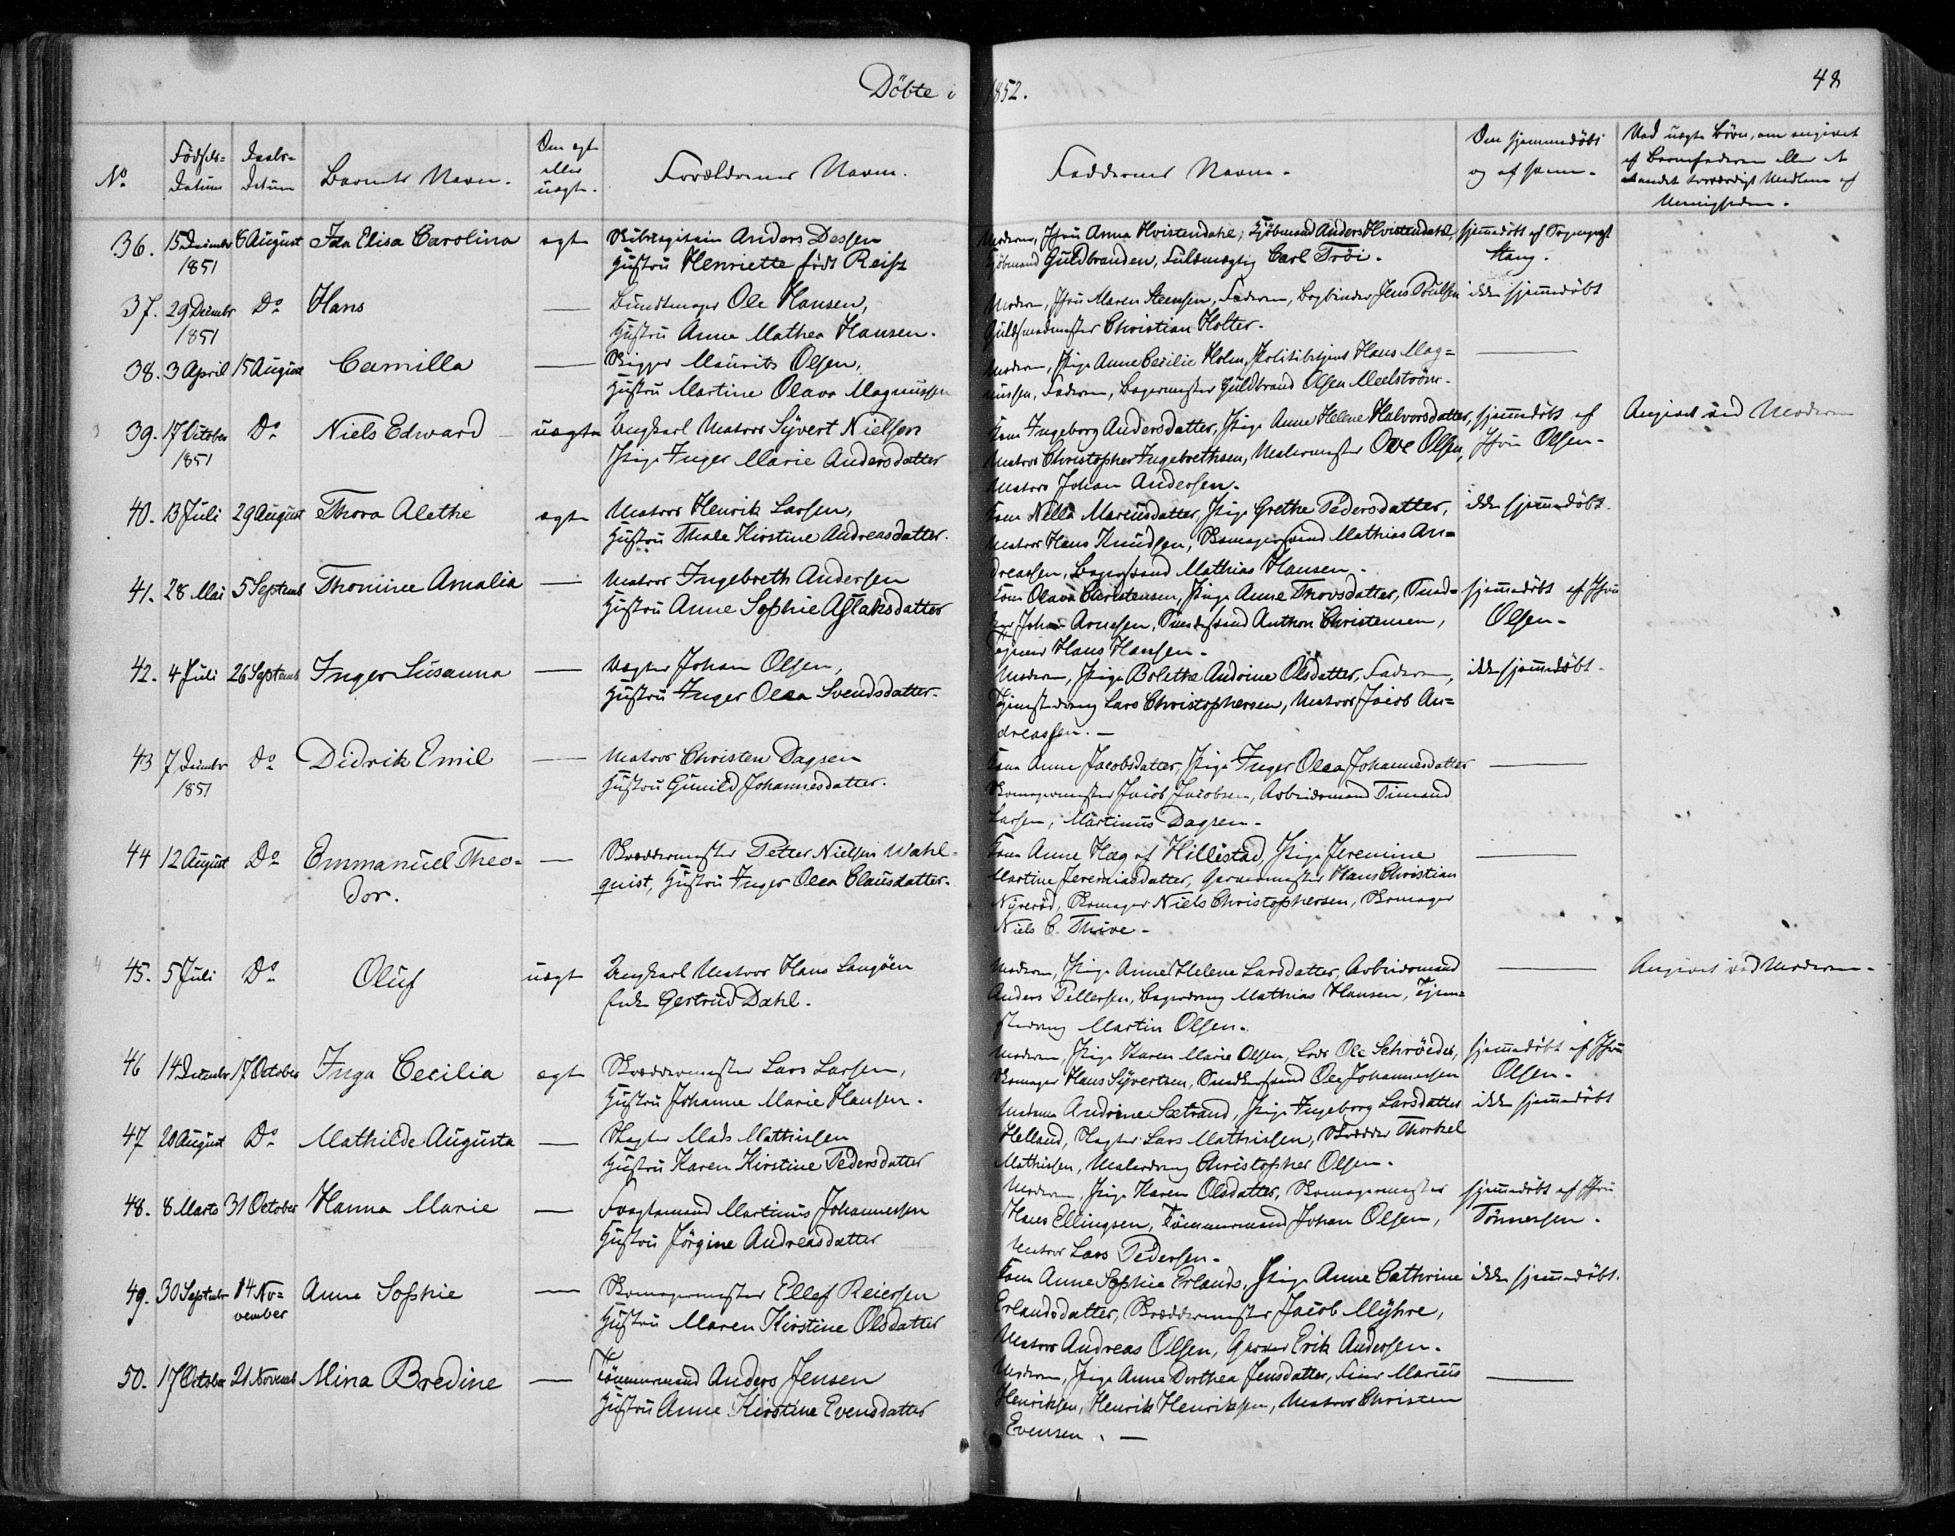 Döbte i 1852.
48
No
Födsels-Datum
Daabs-Datum
Barnets Navn.
Om ægte eller uægte.
Forældrenes Navn.
Faddernes Navne.
Om hjemmedöbt og af hvem.
Ved uægte Börn, om angivet af Barnefaderen eller et andet troværdigt Medlem af Menigheden.
36. 15 December 1851 8 August Ida Elisa Carolina ægte
Skibskapitain Anders Dessen
Hustru Henriette födt Reiss
Moderen, Jfru Anna Hvistendahl, Kjöbmand Anders Hvistendahl,
Kjöbmand Guldbranden, Fuldmægtig Carl Tröi.
hjemmedöbt af Sognepræst
Stang.
37. 29 Decembr 1851 Do Hans —
Bundtmager Ole Hansen,
Hustru Anne Mathea Hansen.
Moderen, Jfru Maren Steensen, Faderen, Bogbinder Jens Poulsen
Guldsmedmester Christian Holter.
ikke hjemmedöbt
38. 3 April 15 August Camilla —
Skipper Maurits Olsen,
Hustru Martine Olava Magnussen
Moderen, Pige Anne Cecilie Holm, Politibetjent Hans Mag=
nussen, Faderen, Bagermester Guldbrand Olsen Meelström.
—
39. 17 October 1851 Do Niels Edward uægte
Ungkarl Matros Syvert Nielsen
Pige Inger Marie Andersdatter
Kone Ingeborg Andersdatter, Pige Anne Helene Halvorsdatter,
Matros Christopher Ingebrethsen, Malermester Ove Olsen,
Matros Johan Andersen.
hjemmedöbt af
Jfru Olsen.
Angivet ved Moderen
40. 13 Juli 29 August Thora Alethe ægte
Matros Henrik Larsen,
Hustru Thale Kirstine Andreasdatter.
Kone Nella Marcusdatter, Pige Grethe Pedersdatter,
Matros Hans Knudsen, Skomagersvend Mathias An=
dreassen, Bagersvend Mathias Hansen.
ikke hjemmedöbt.
41. 28 Mai 5 Septemb Thomine Amalia —
Matros Ingebreth Andersen
Hustru Anne Sophie Aslaksdatter
Kone Olava Christensen, Pige Anne Thorsdatter, Sned=
ker Johan Arnesen, Snedkersvend Anthon Christensen,
Tjener Hans Hansen.
hjemmedöbt af Jfru
Olsen.
42. 4 Juli 26 Septemb Inger Susanna —
Vægter Johan Olsen,
Hustru Inger Olea Svendsdatter.
Moderen, Pige Bolethe Andrine Olsdatter, Faderen,
Tjenestedreng Lars Christophersen, Matros Jacob An=
dreassen.
ikke hjemmedöbt.
43 7 Decembr 1851 Do Didrik Emil —
Matros Christen Dagsen
Hustru Gunild Johannesdatter.
Kone Anne Jacobsdatter, Pige Inger Olea Johannesdatter
Skomagermester Jacob Jacobsen, Arbeidsmand Simand
Larsen, Martinus Dagsen.
—
44 12 August Do Emmanuel Theo-
dor. —
Skræddermester Petter Nielsen Wahl-
quist, Hustru Inger Olea Clausdatter.
Kone Anne Hæg af Hillestad, Pige Jeremine
Martine Jeremiasdatter, Garvermester Hans Christian
Nyeröd, Skomager Niels Christophersen, Skomager
Niels C. Thive.
—
45. 5 Juli Do Oluf uægte
Ungkarl Matros Hans Langöen
Enke Gertrud Dahl.
Moderen, Pige Anne Helene Larsdatter, Arbeidsmand
Anders Pellersen, Bagerdreng Mathias Hansen, Tjene=
stedreng Martin Olsen.
—
Angivet ved Moderen.
46 14 Decembr 17 October Inga Cecilia ægte
Skræddermester Lars Larsen,
Hustru Johanne Marie Hansen.
Moderen, Pige Karen Marie Olsen, Lods Ole Schröeder,
Skomager Hans Syvertsen, Snedkersvend Ole Johannesen
hjemmedöbt af Jfru
Olsen.
47 20 August Do Mathilde Augusta —
Slagter Mads Mathissen
Hustru Karen Kirstine Pedersdatter
Madame Andrine Sætrand, Pige Ingeborg Larsdatter
Helland, Slagter Lars Mathissen, Skrædder Thorkel
Mathissen, Malerdreng Christopher Olsen.
ikke hjemmedöbt
48. 8 Marts 31 October Hanna Marie —
Fragtemand Martinus Johannesen
Hustru Jörgine Andreasdatter
Moderen, Pige Karen Olsdatter, Skomagermester
Hans Ellingsen, Tömmermand Johan Olsen,
Matros Lars Pedersen.
hjemmedöbt af Jfru
Tönnessen.
49. 30 Septembr 14 No=
vember Anne Sophie —
Skomagermester Ellef Reiersen
Hustru Maren Kirstine Olsdatter
Kone Anne Sophie Erlands, Pige Anne Cathrine
Erlandsdatter, Skræddermester Jacob Myhre,
Matros Andreas Olsen, Garver Erik Andersen.
ikke hjemmedöbt.
50. 17 October 21 Novemb Mina Bredine —
Tömmermand Anders Jensen
Hustru Anne Kirstine Evensdatter
Moderen, Pige Anne Dorthea Jensdatter, Marius
Henriksen, Henrik Henriksen, Matros Christen
Evensen.
—